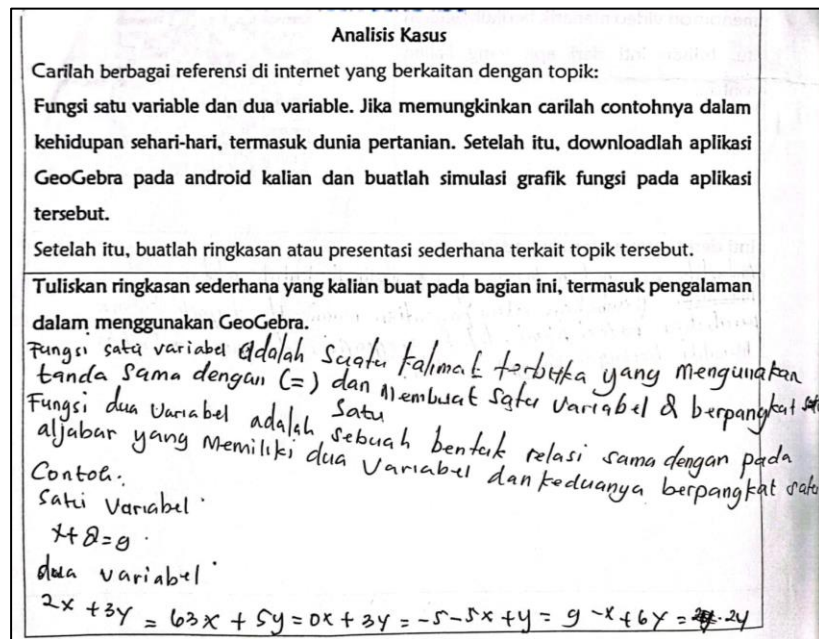 Analisis Kasus
Carilah berbagai referensi di internet yang berkaitan dengan topik:
Fungsi satu variable dan dua variable. Jika memungkinkan carilah contohnya dalam
kehidupan sehari-hari, termasuk dunia pertanian. Setelah itu, downloadlah aplikasi
GeoGebra pada android kalian dan buatlah simulasi grafik fungsi pada aplikasi
tersebut.
Setelah itu, buatlah ringkasan atau presentasi sederhana terkait topik tersebut.
Tuliskan ringkasan sederhana yang kalian buat pada bagian ini, termasuk pengalaman
dalam menggunakan GeoGebra.
Fungsi satu variabel adalah suatu kalimat terbuka yang mengunakan
tanda sama dengan (=) dan Membuat satu variabel & berpangkat
satu
Fungsi dua variabel adalah sebuah bentuk relasi sama dengan pada
aljabar yang memiliki dua variabel dan keduanya berpangkat satu
Contoh:
satu variabel
x+8=9
dua variabel
2x +3y = 63x + 5y = 0x + 3y = -5-5x + y = 9 -x + 6y = 2y